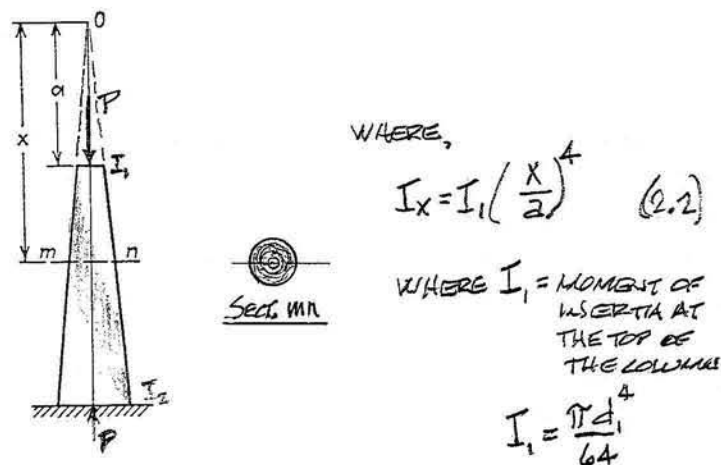 O
a
x
P
I₁
m n
I₂
P
Sect. mn
WHERE,
Iₓ = I₁(x/a)⁴ (2.2)
WHERE I₁ = MOMENT OF
INSERTIA AT
THE TOP OF
THE COLUMN
I₁ = πd₁⁴/64